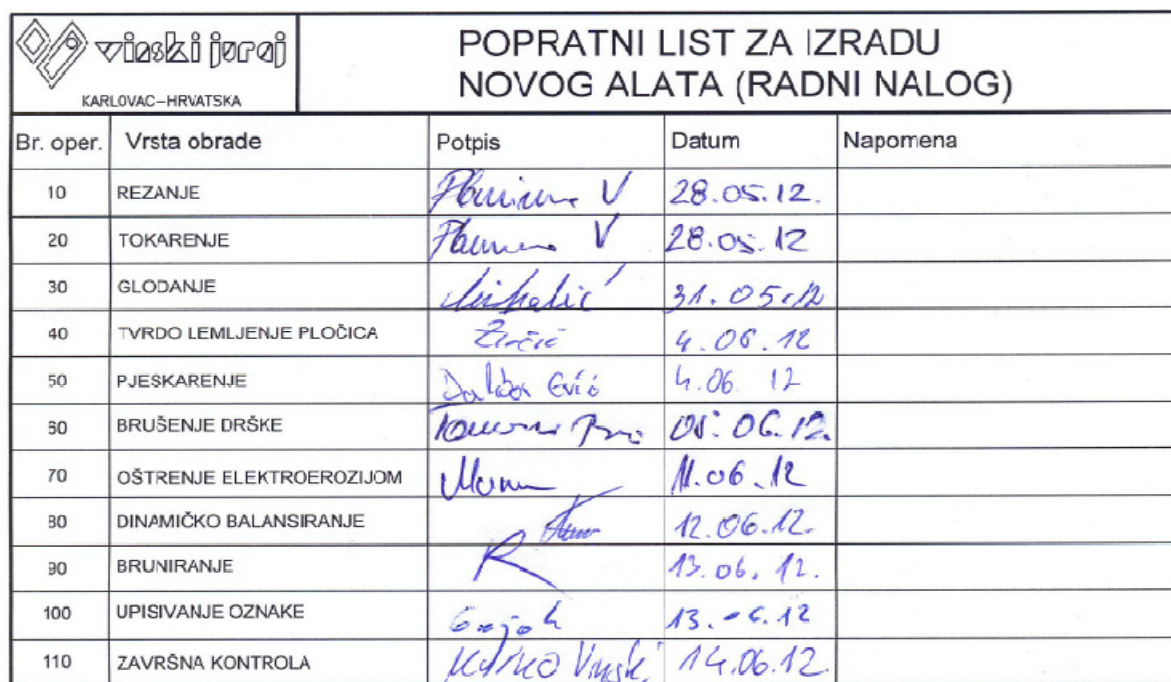 vinski juraj
KARLOVAC-HRVATSKA
POPRATNI LIST ZA IZRADU
NOVOG ALATA (RADNI NALOG)
Br. oper. Vrsta obrade Potpis Datum Napomena
10 REZANJE V 28.05.12.
20 TOKARENJE V 28.05.12
30 GLODANJE Mihalić 31.05.12
40 TVRDO LEMLJENJE PLOČICA 4.06.12
50 PJESKARENJE 4.06 12
60 BRUŠENJE DRŠKE 05.06.12.
70 OŠTRENJE ELEKTROEROZIJOM 11.06.12
80 DINAMIČKO BALANSIRANJE 12.06.12.
90 BRUNIRANJE 13.06.12.
100 UPISIVANJE OZNAKE 13.-6.12
110 ZAVRŠNA KONTROLA 14.06.12.